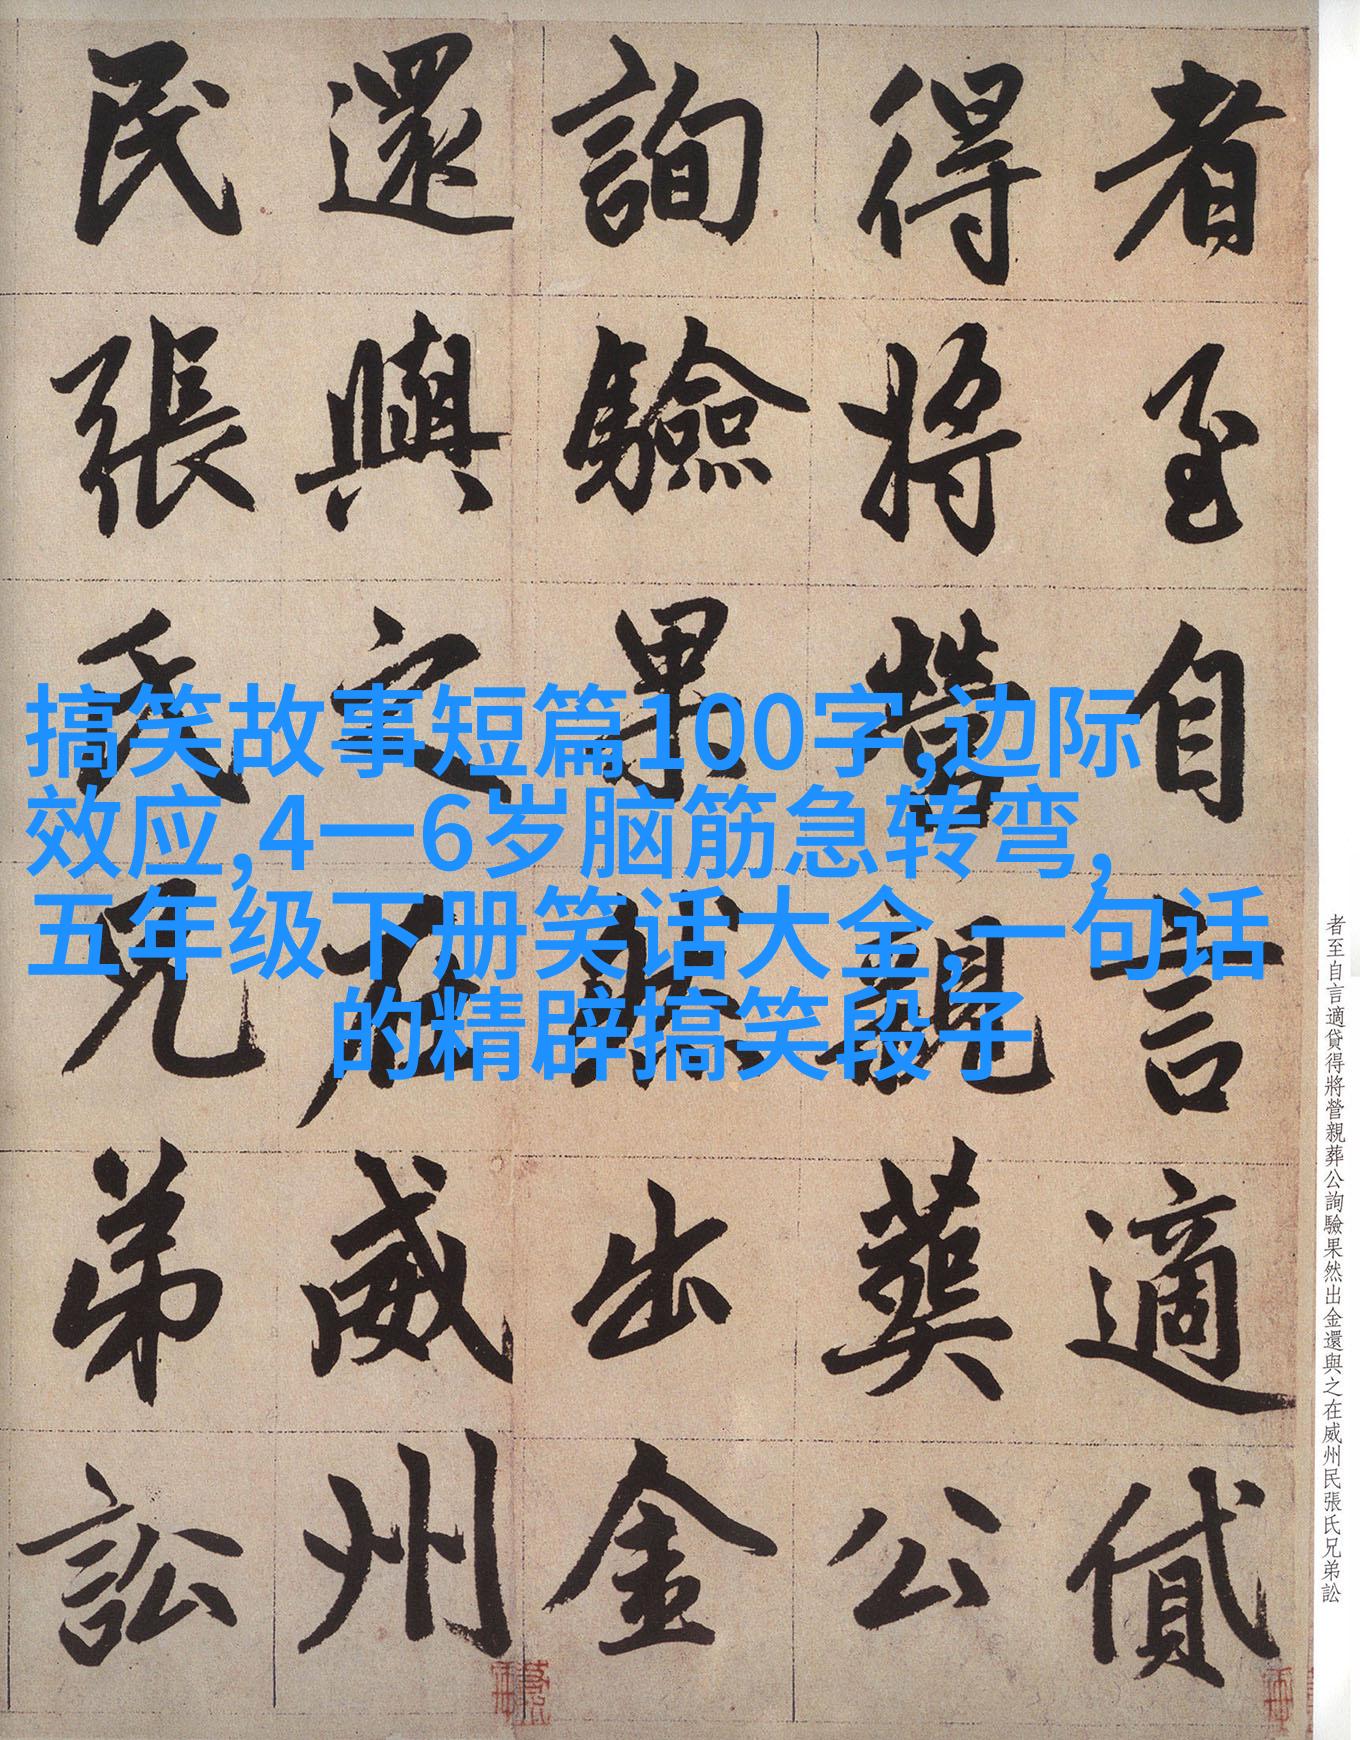 者至自言適貸
得將營親葬公
詢驗果然出金
還與之在威州
民張氏兄弟訟
搞笑故事短篇100字,边际
效应,4一6岁脑筋急转弯,
五年级下册笑话大全,一句话
的精辟搞笑段子
者至自言適貸得將營親葬公詢驗果然出金還與之在威州民張氏兄弟訟